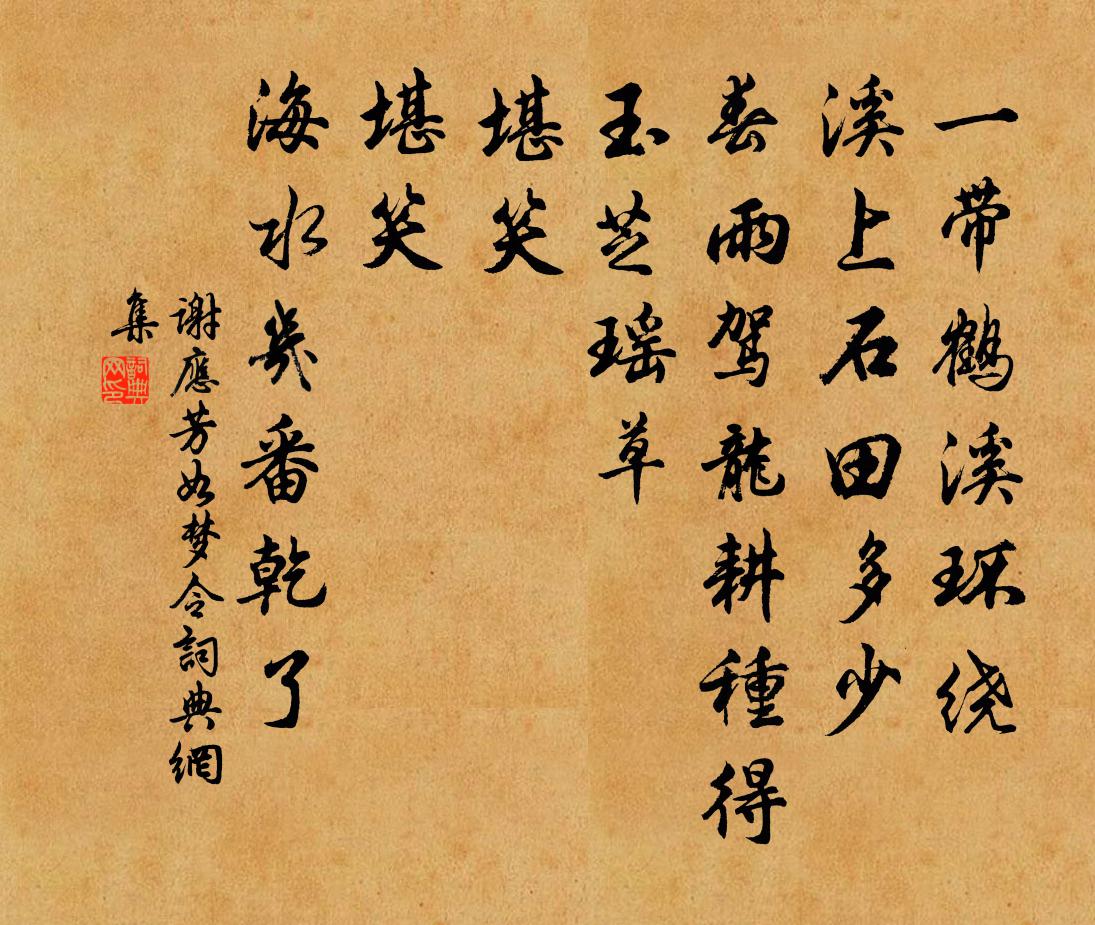 一带鹤溪环绕
溪上石田多少
春雨驾龍耕種得
玉芝瑶草
堪笑
堪笑
海水幾番乾了
谢應芳如梦令詞典網
集
詞典网印